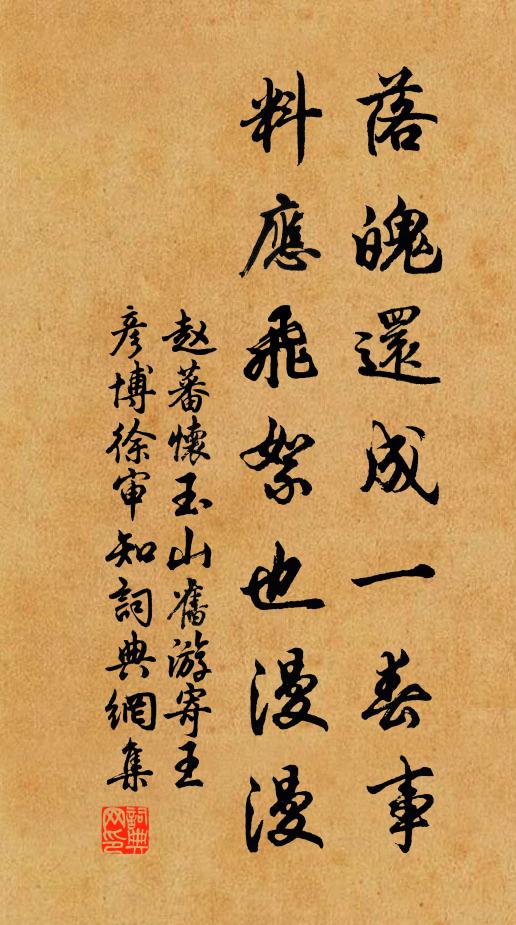 落魄還成一春事
料應飛絮也漫漫
赵蕃懷玉山舊游寄王
彦博徐审知詞典網集
詞典网印